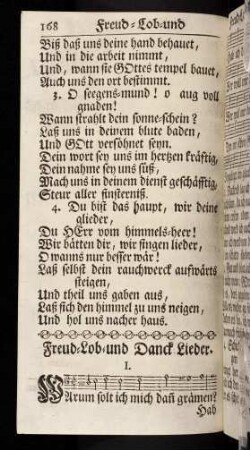 168 Freud-Lob-und
Biß daß uns deine hand behauet,
Und in die arbeit nimmt,
Und, wann sie GOttes tempel bauet,
Auch uns den ort bestimmt.
3. O seegens-mund! o aug voll
gnaden!
Wann strahlt dein sonne-schein?
Laß uns in deinem blute baden,
Und GOtt versöhnet seyn.
Dein wort sey uns im hertzen kräftig,
Dein nahme sey uns süß,
Mach uns in deinem dienst geschäfftig,
Steur aller finsterniß.
4. Du bist das haupt, wir deine
glieder,
Du HErr vom himmels-heer!
Wir bätten dir, wir singen lieder,
O wanns nur besser wär!
Laß selbst dein rauchwerck aufwärts
steigen,
Und theil uns gaben aus,
Laß sich den himmel zu uns neigen,
Und hol uns nacher haus.
Freud-Lob-und Danck Lieder.
I.
Warum solt ich mich dañ grämen?
Hab